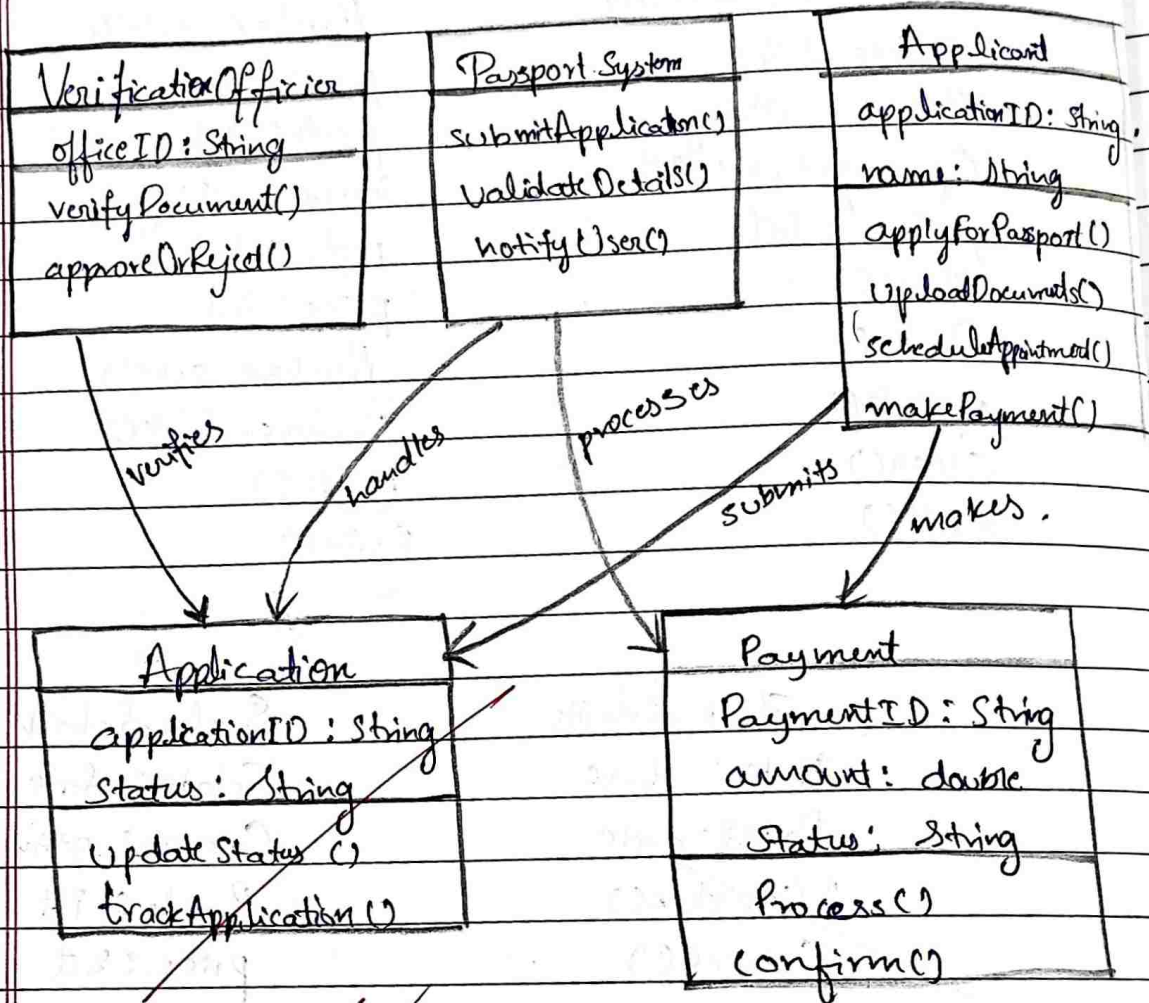 VerificationOfficier
officeID : String
verifyDocument()
approveOrReject()
Passport System
submitApplication()
validateDetails()
notifyUser()
Applicant
applicationID : String.
name : String
applyForPassport()
UploadDocuments()
scheduleAppointment()
makePayment()
verifies
handles
processes
submits
makes.
Application
applicationID : String
Status : String
Update Status ()
trackApplication ()
Payment
PaymentID : String
amount : double
Status : String
Process()
Confirm()